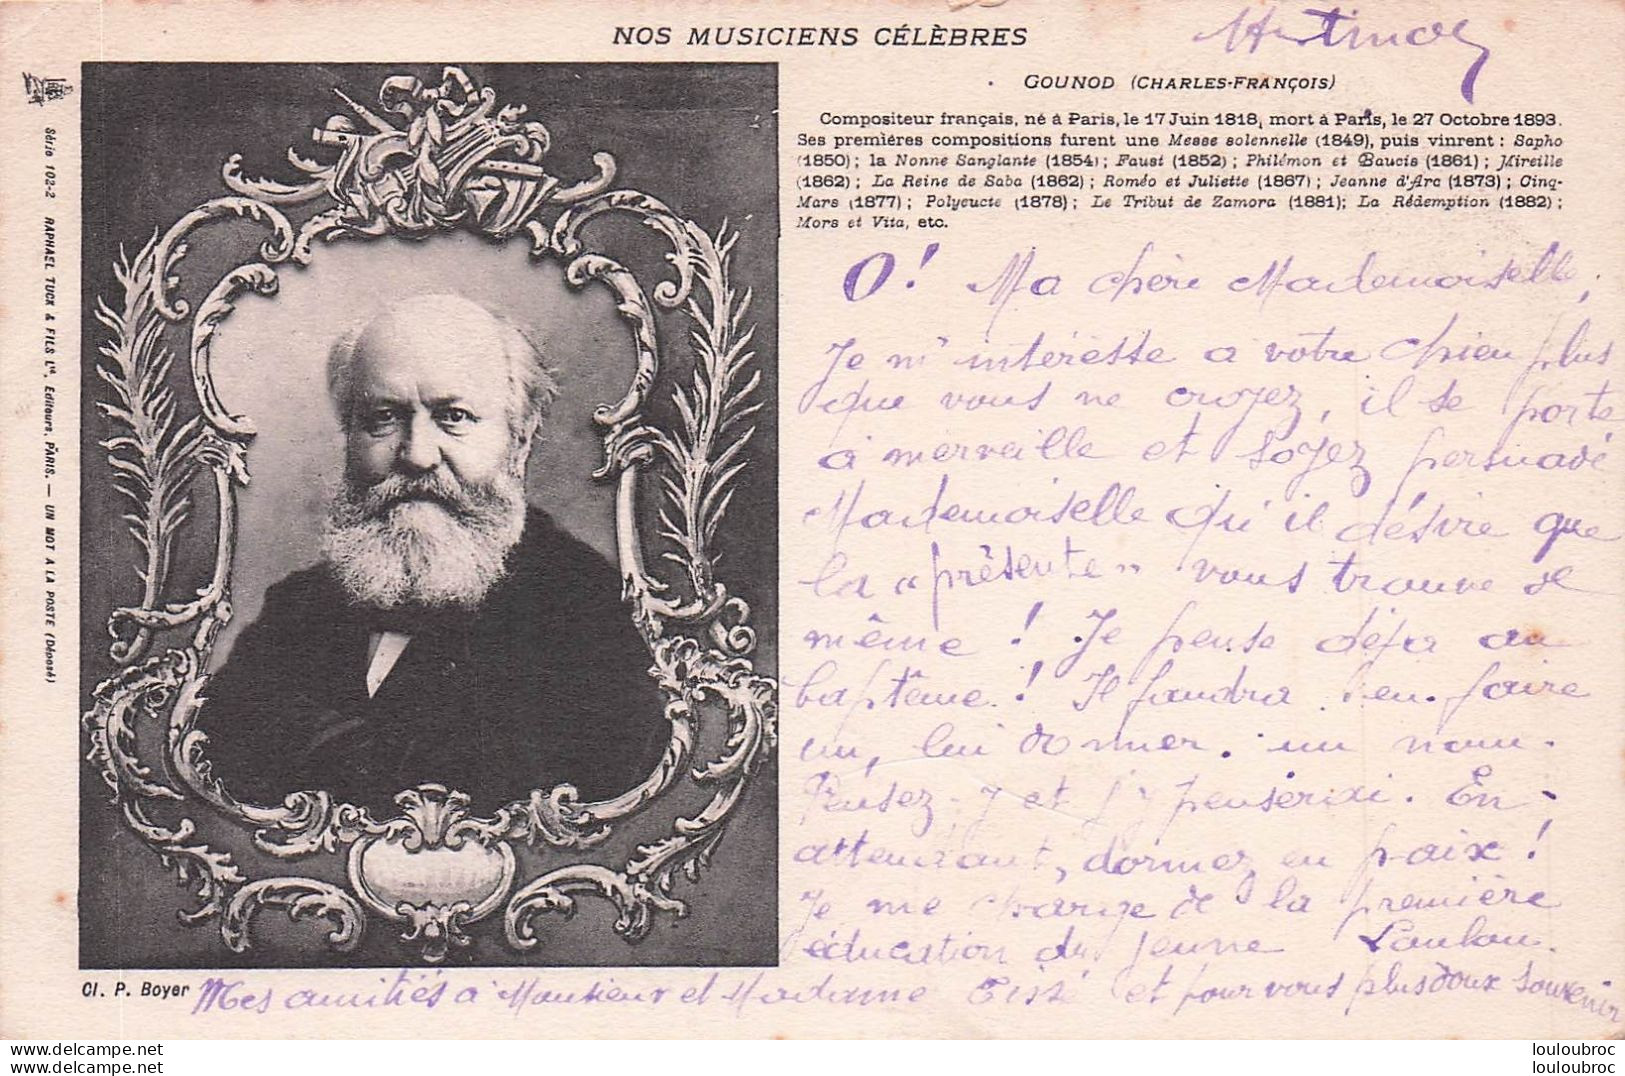 NOS MUSICIENS CÉLÈBRES
GOUNOD (CHARLES-FRANÇOIS)
Compositeur français, né à Paris, le 17 Juin 1818, mort à Paris, le 27 Octobre 1893.
Ses premières compositions furent une Messe solennelle (1849), puis vinrent : Sapho
(1850) ; la Nonne Sanglante (1854) ; Faust (1852) ; Philémon et Baucis (1861) ; Mireille
(1862) ; La Reine de Saba (1862) ; Roméo et Juliette (1867) ; Jeanne d'Arc (1873) ; Cinq-
Mars (1877) ; Polyeucte (1878) ; Le Tribut de Zamora (1881); La Rédemption (1882) ;
Mors et Vita, etc.
O! Ma chère Mademoiselle,
Je m'intéresse à votre chien plus
que vous ne croyez, il se porte
à merveille et soyez persuadé
Mademoiselle qu'il désire que
la "présente" vous trouve de
même ! Je pense déjà au
baptême ! Il faudra en faire
un, lui donner un nom.
Pensez-y et j'y penserai. En
attendant, dormez en paix !
Je me charge de la première
éducation du jeune Loulou.
Mes amitiés à Monsieur et Madame et pour vous plus doux souvenir
Série 102-2 RAPHAEL TUCK & FILS Ltd, Editeurs, PARIS. — UN MOT A LA POSTE (Déposé)
Cl. P. Boyer
louloubroc
louloubroc